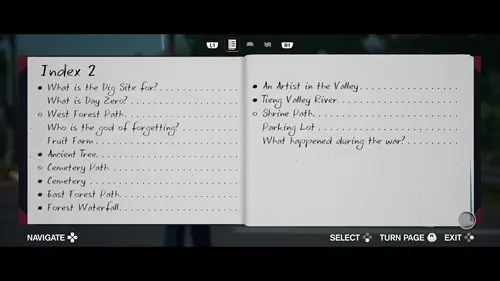 L1 R1
Index 2
What is the Dig Site for?
What is Day Zero?
West Forest Path
Who is the god of forgetting?
Fruit Farm
Ancient Tree
Cemetery Path
Cemetery
East Forest Path
Forest Waterfall
An Artist in the Valley
Tieng Valley River
Shrine Path
Parking Lot
What happened during the war?
NAVIGATE SELECT TURN PAGE EXIT